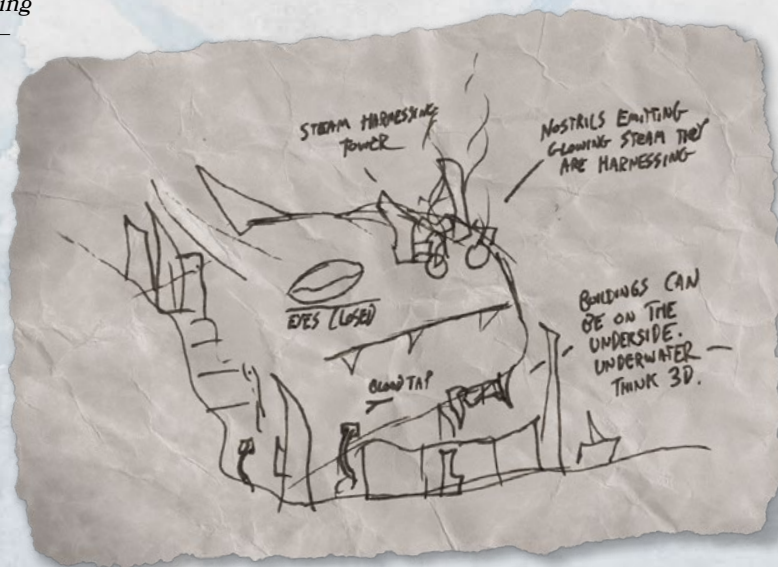 ing
STEAM HARNESSING
TOWER
NOSTRILS EMITTING
GLOWING STEAM THEY
ARE HARNESSING
EYES CLOSED
BUILDINGS CAN
BE ON THE
UNDERSIDE.
UNDERWATER
THINK 3D.
BLOOD TAP